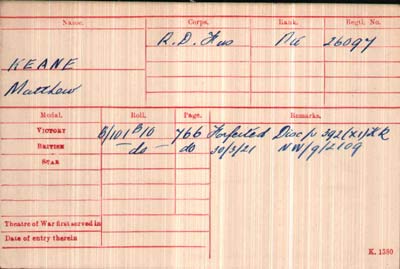 Name. Corps. Rank. Regtl. No.
R. D. Fus Pte 26097
KEANE
Matthew
Medal. Roll. Page. Remarks.
VICTORY B/101 B10 766 Forfeited Disc /v 392 (XI) KR
BRITISH — do — do 30/3/21 NW/9/2109
STAR
Theatre of War first served in
Date of entry therein
K. 1380